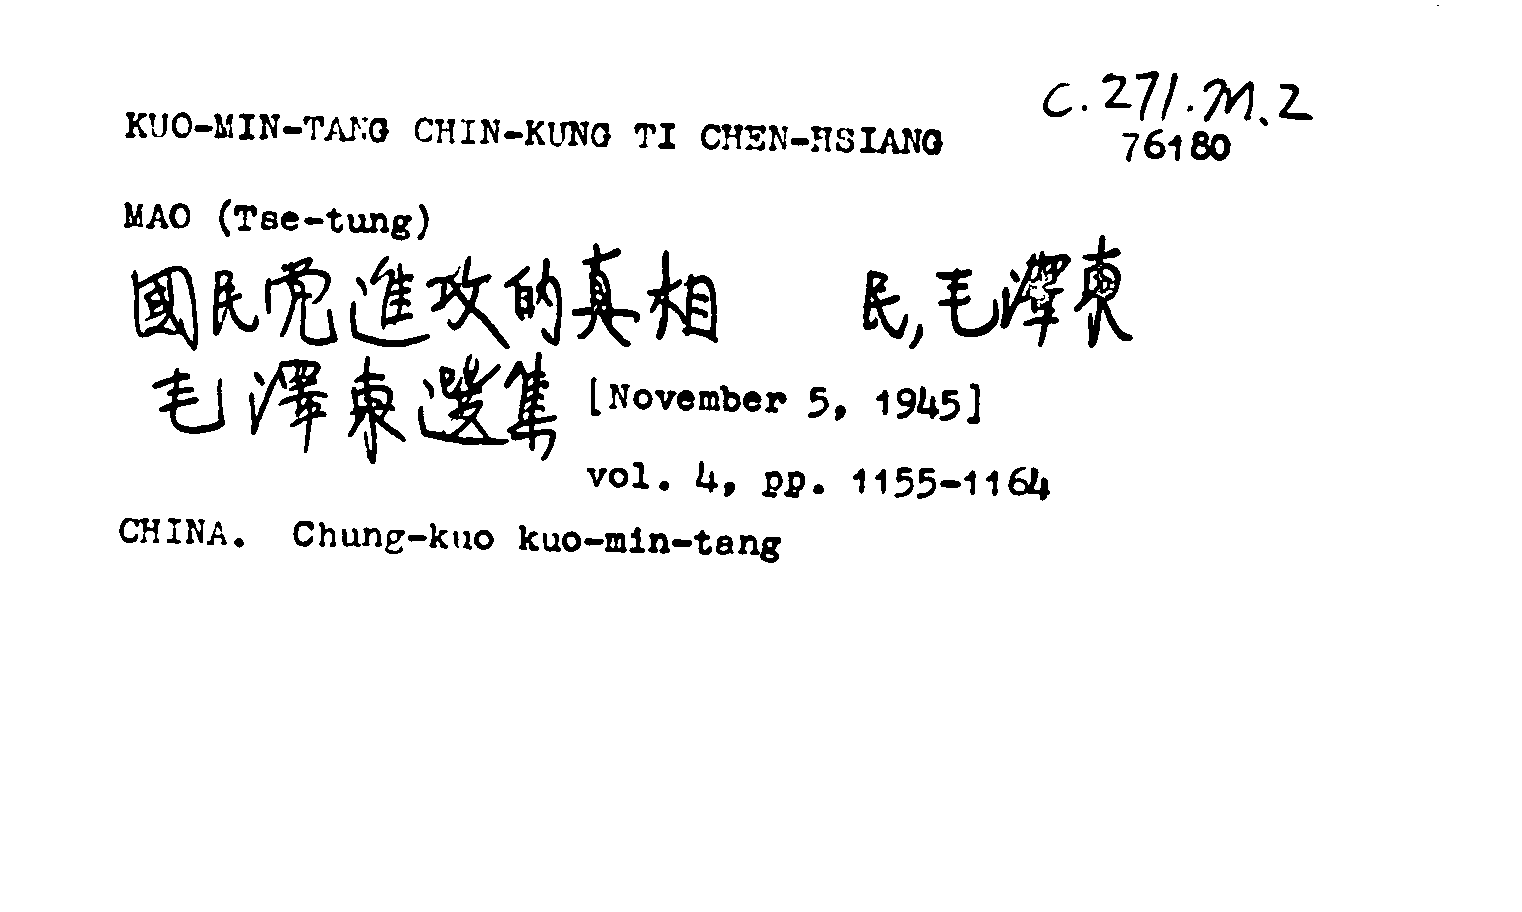 KUO-MIN-TANG CHIN-KUNG TI CHEN-HSIANG
C.271.M.2
76180
MAO (Tse-tung)
國民党進攻的真相 民,毛澤東
毛澤東選集 [November 5, 1945]
vol. 4, pp. 1155-1164
CHINA. Chung-kuo kuo-min-tang